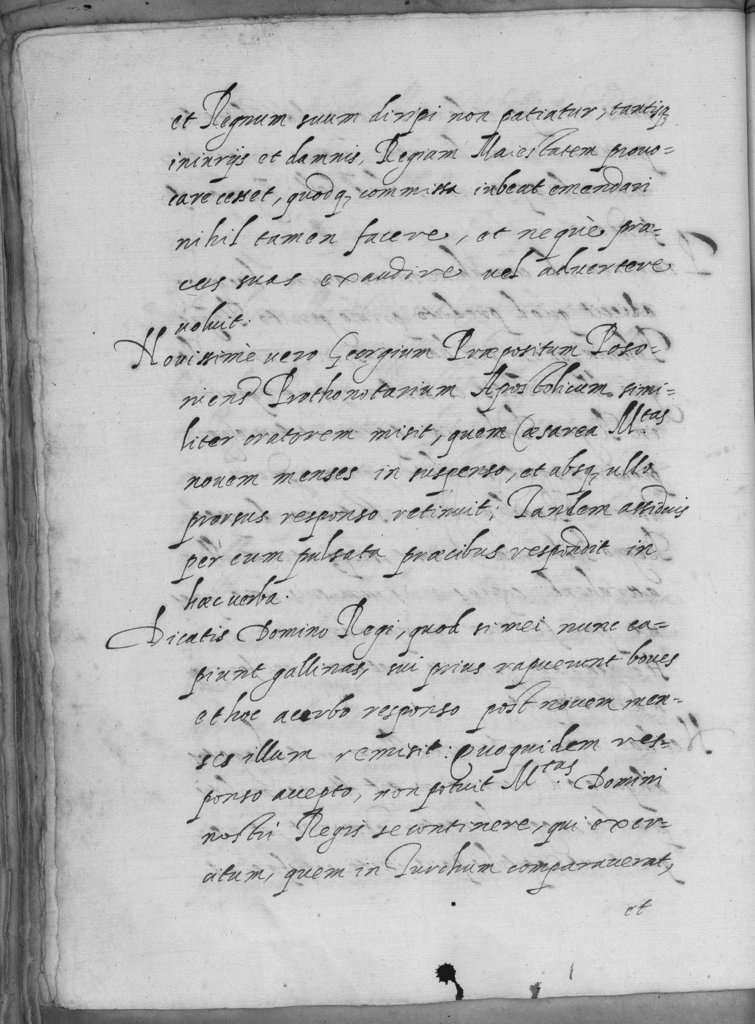 et Regnum suum diripi non patiatur, tantisq;
iniurijs et damnis, Regiam Maiestatem prouo=
care cesset, quodq; commissa iubeat emendari
nihil tamen facere, et neque præ=
ces suas exaudire uel aduertere
uoluit.
Nouissimè uero Georgium Præpositum Poso=
niens Prothonotarium Apostolicum simi=
liter oratorem misit, quem Cæsarea M.tas
nouem menses in suspenso, et absq; ullo
prorsus responso retinuit; Tandem assiduis
per eum pulsata præcibus respondit in
hæc uerba.
Dicatis Domino Regi, quod si mei nunc ca=
piunt gallinas, sui prius rapuerunt boues
et hoc acerbo responso post nouem men=
ses illum remisit: Quo quidem res=
ponso accepto, non potuit M.tas Domini
nostri Regis se continere, qui exer=
citum, quem in Turchum comparauerat,
et